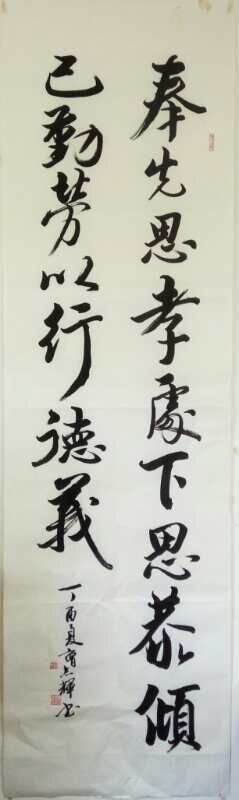 奉先思孝處下思恭傾
己勤勞以行德義
丁酉夏齊志輝書